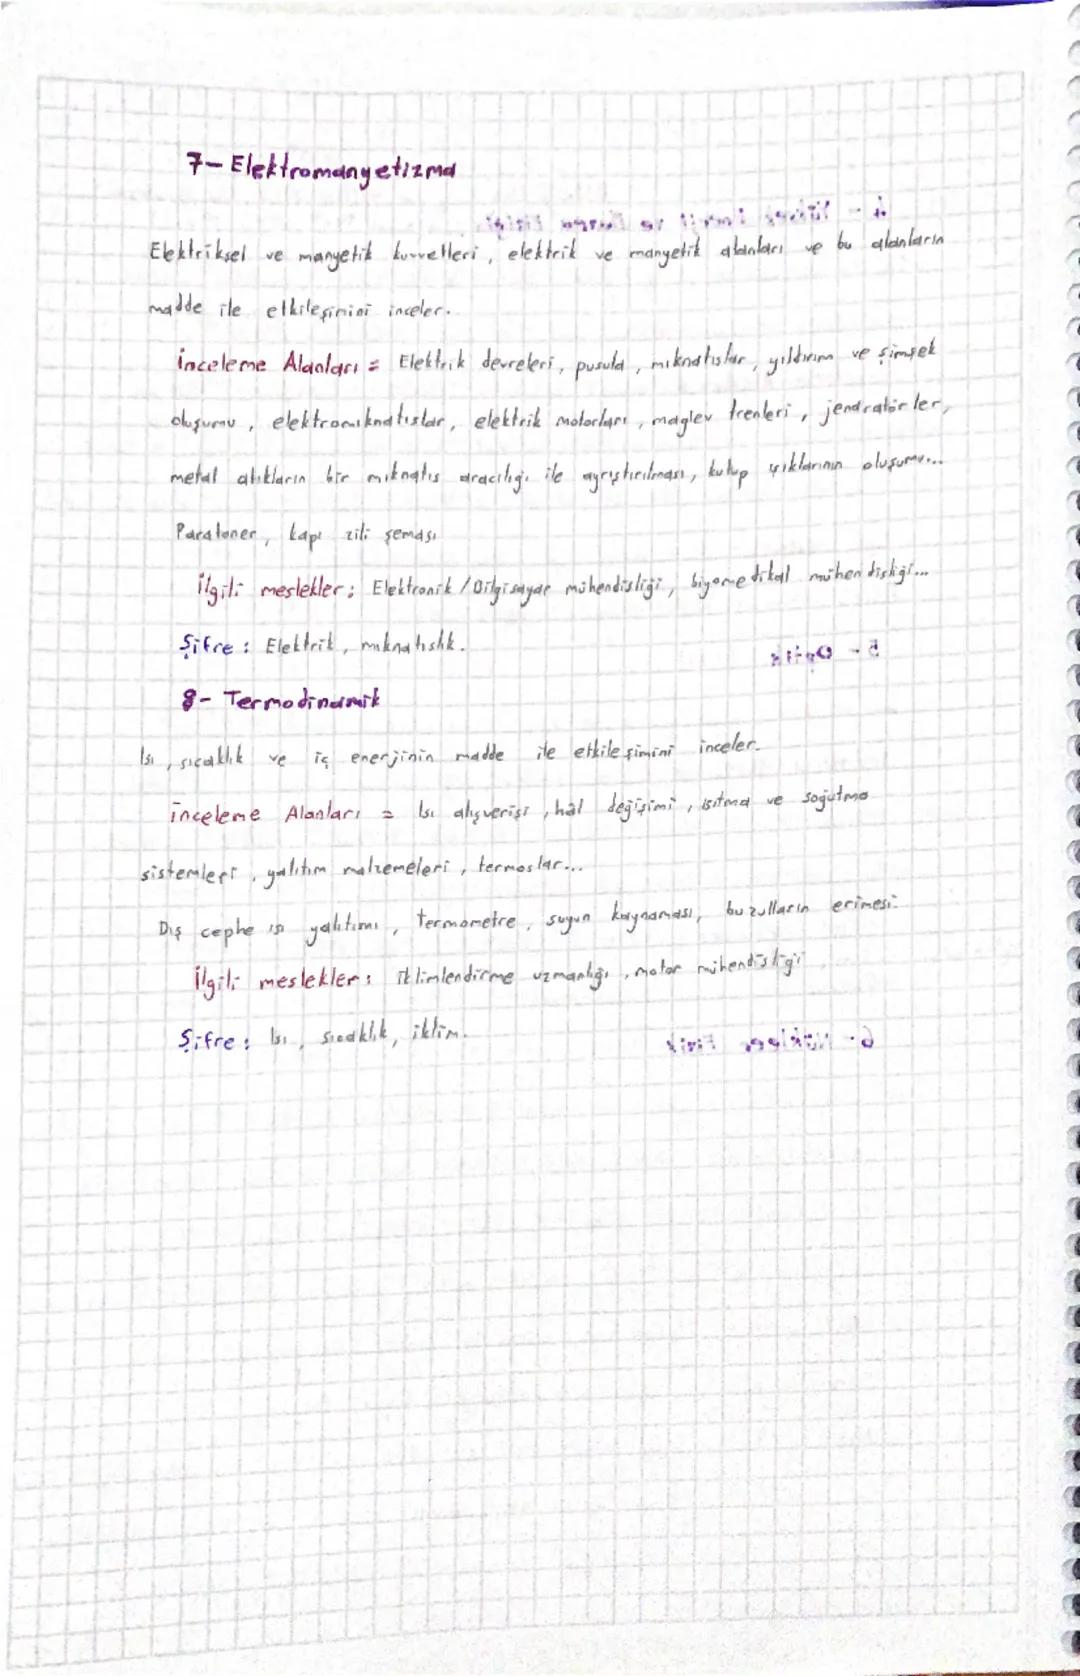 7- Elektromanyetizma
4- Yüksek Enerji ve Plazma Fiziği
Elektriksel ve manyetik kuvvetleri, elektrik ve manyetik alanları ve bu alanların
madde ile etkileşimini inceler.
İnceleme Alanları = Elektrik devreleri, pusula, mıknatıslar, yıldırım ve şimşek
oluşumu, elektromıknatıslar, elektrik motorları, maglev trenleri, jenaratörler,
metal atıkların bir mıknatıs aracılığı ile ayrıştırılması, kutup ışıklarının oluşumu...
Paratoner, kapı zili şeması
İlgili meslekler: Elektronik / Bilgisayar mühendisliği, biyomedikal mühendisliği...
Şifre: Elektrik, mıknatıslık.
5- Optik
8- Termodinamik
Isı, sıcaklık ve iç enerjinin madde ile etkileşimini inceler.
İnceleme Alanları = Isı alışverişi, hâl değişimi, ısıtma ve soğutma
sistemleri, yalıtım malzemeleri, termoslar...
Dış cephe ısı yalıtımı, termometre, suyun kaynaması, buzulların erimesi.
İlgili meslekler: İklimlendirme uzmanlığı, motor mühendisliği
Şifre: Isı, sıcaklık, iklim.
6- Nükleer Fizik